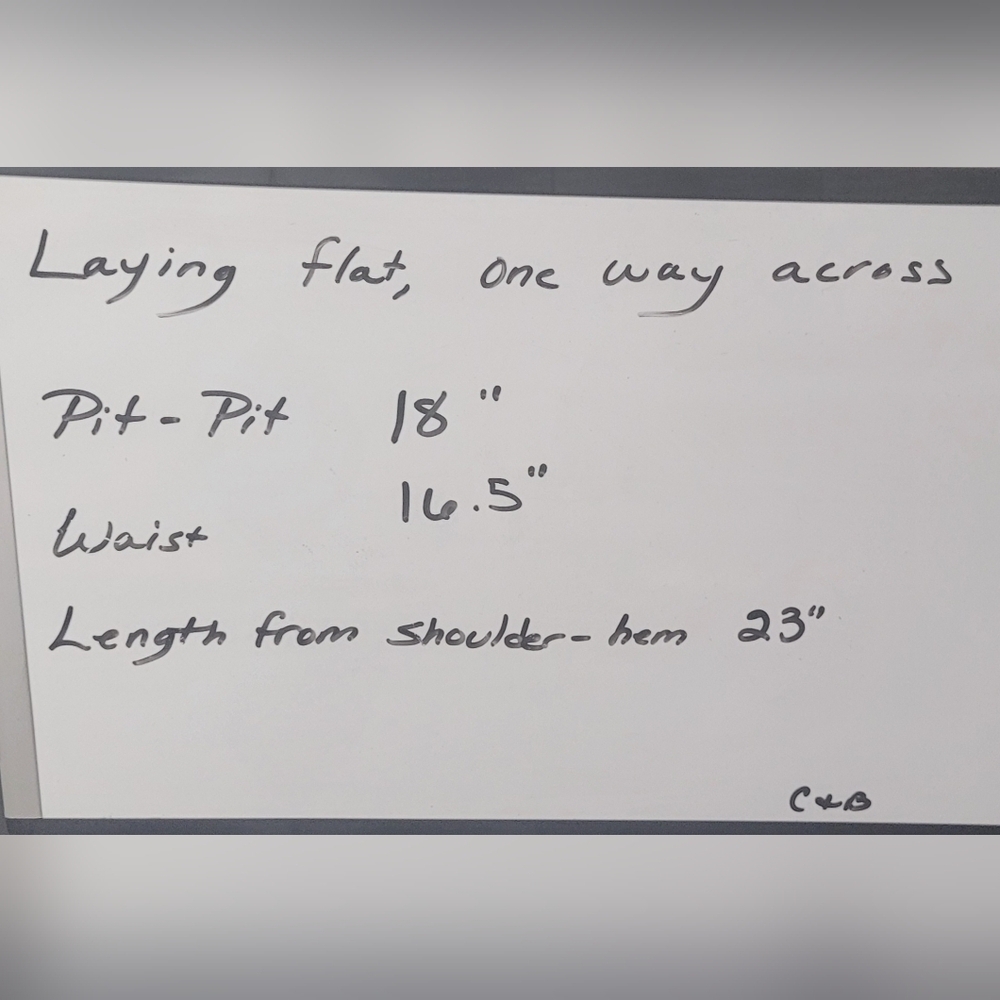 Laying flat, one way across
Pit - Pit 18"
Waist 16.5"
Length from shoulder - hem 23"
C & B